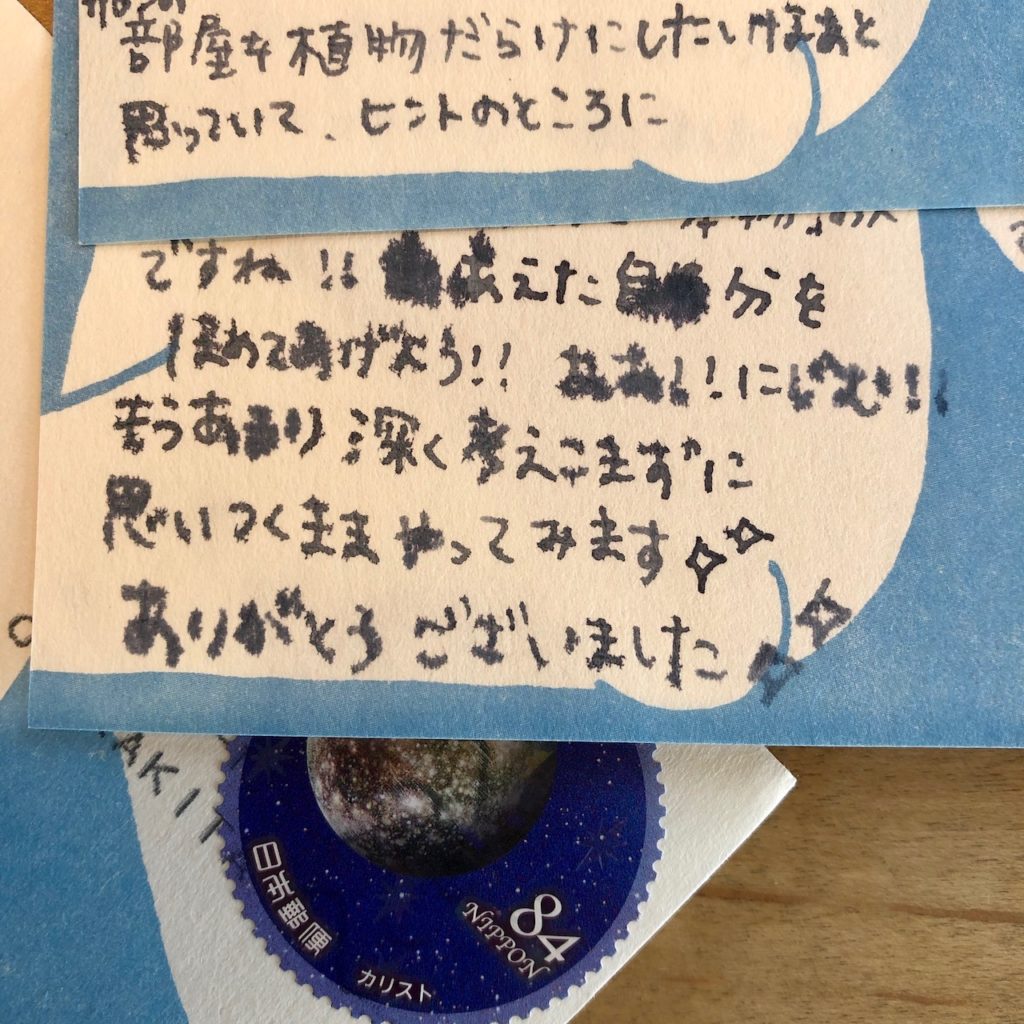 部屋を植物だらけにしたいけなあと
思っていて、ヒントのところに
ですね!! あえた自分を
ほめてあげよう!! ああ!!にじむ!!
もうあまり深く考えこまずに
思いつくままやってみます
ありがとうございました
AKI
日本郵便
84
NIPPON
カリスト